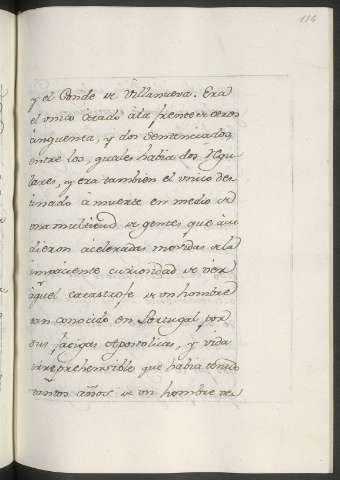 116
y el Conde de Villanueva. Era
el unico citado à la frente de otros
cinquenta, y dos Sentenciados,
entre los, quales habia dos Regu
lares, y era tambien el unico des
tinado à muerte en medio de
una multitud de gentes que acu
dieron aceleradas movidas de la
impaciente curiosidad de ver
aquel catastrofe de un hombre
tan conocido en Portugal por
sus fatigas Apostolicas, y vida
irreprehensible que habia tenido
tantos años de un hombre de